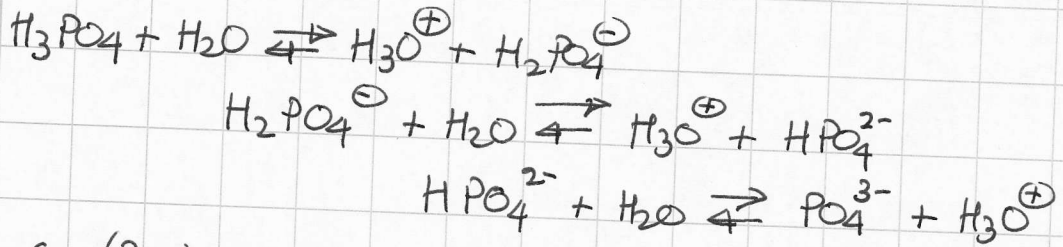 H₃PO₄ + H₂O ⇌ H₃O⊕ + H₂PO₄⊖
H₂PO₄⊖ + H₂O ⇌ H₃O⊕ + HPO₄²⁻
HPO₄²⁻ + H₂O ⇌ PO₄³⁻ + H₃O⊕